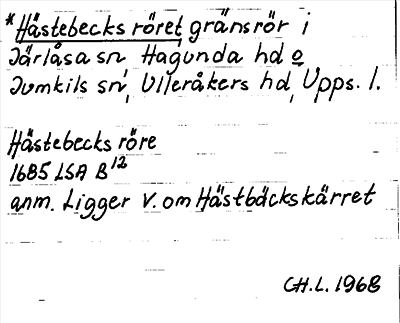 *Hästebecks röret gränsrör i
Järlåsa sn Hagunda hd o
Jumkils sn, Ulleråkers hd, Upps. l.
Hästebecks röre
1685 LSA B 12
anm. Ligger V. om Hästbäckskärret
CH.L. 1968